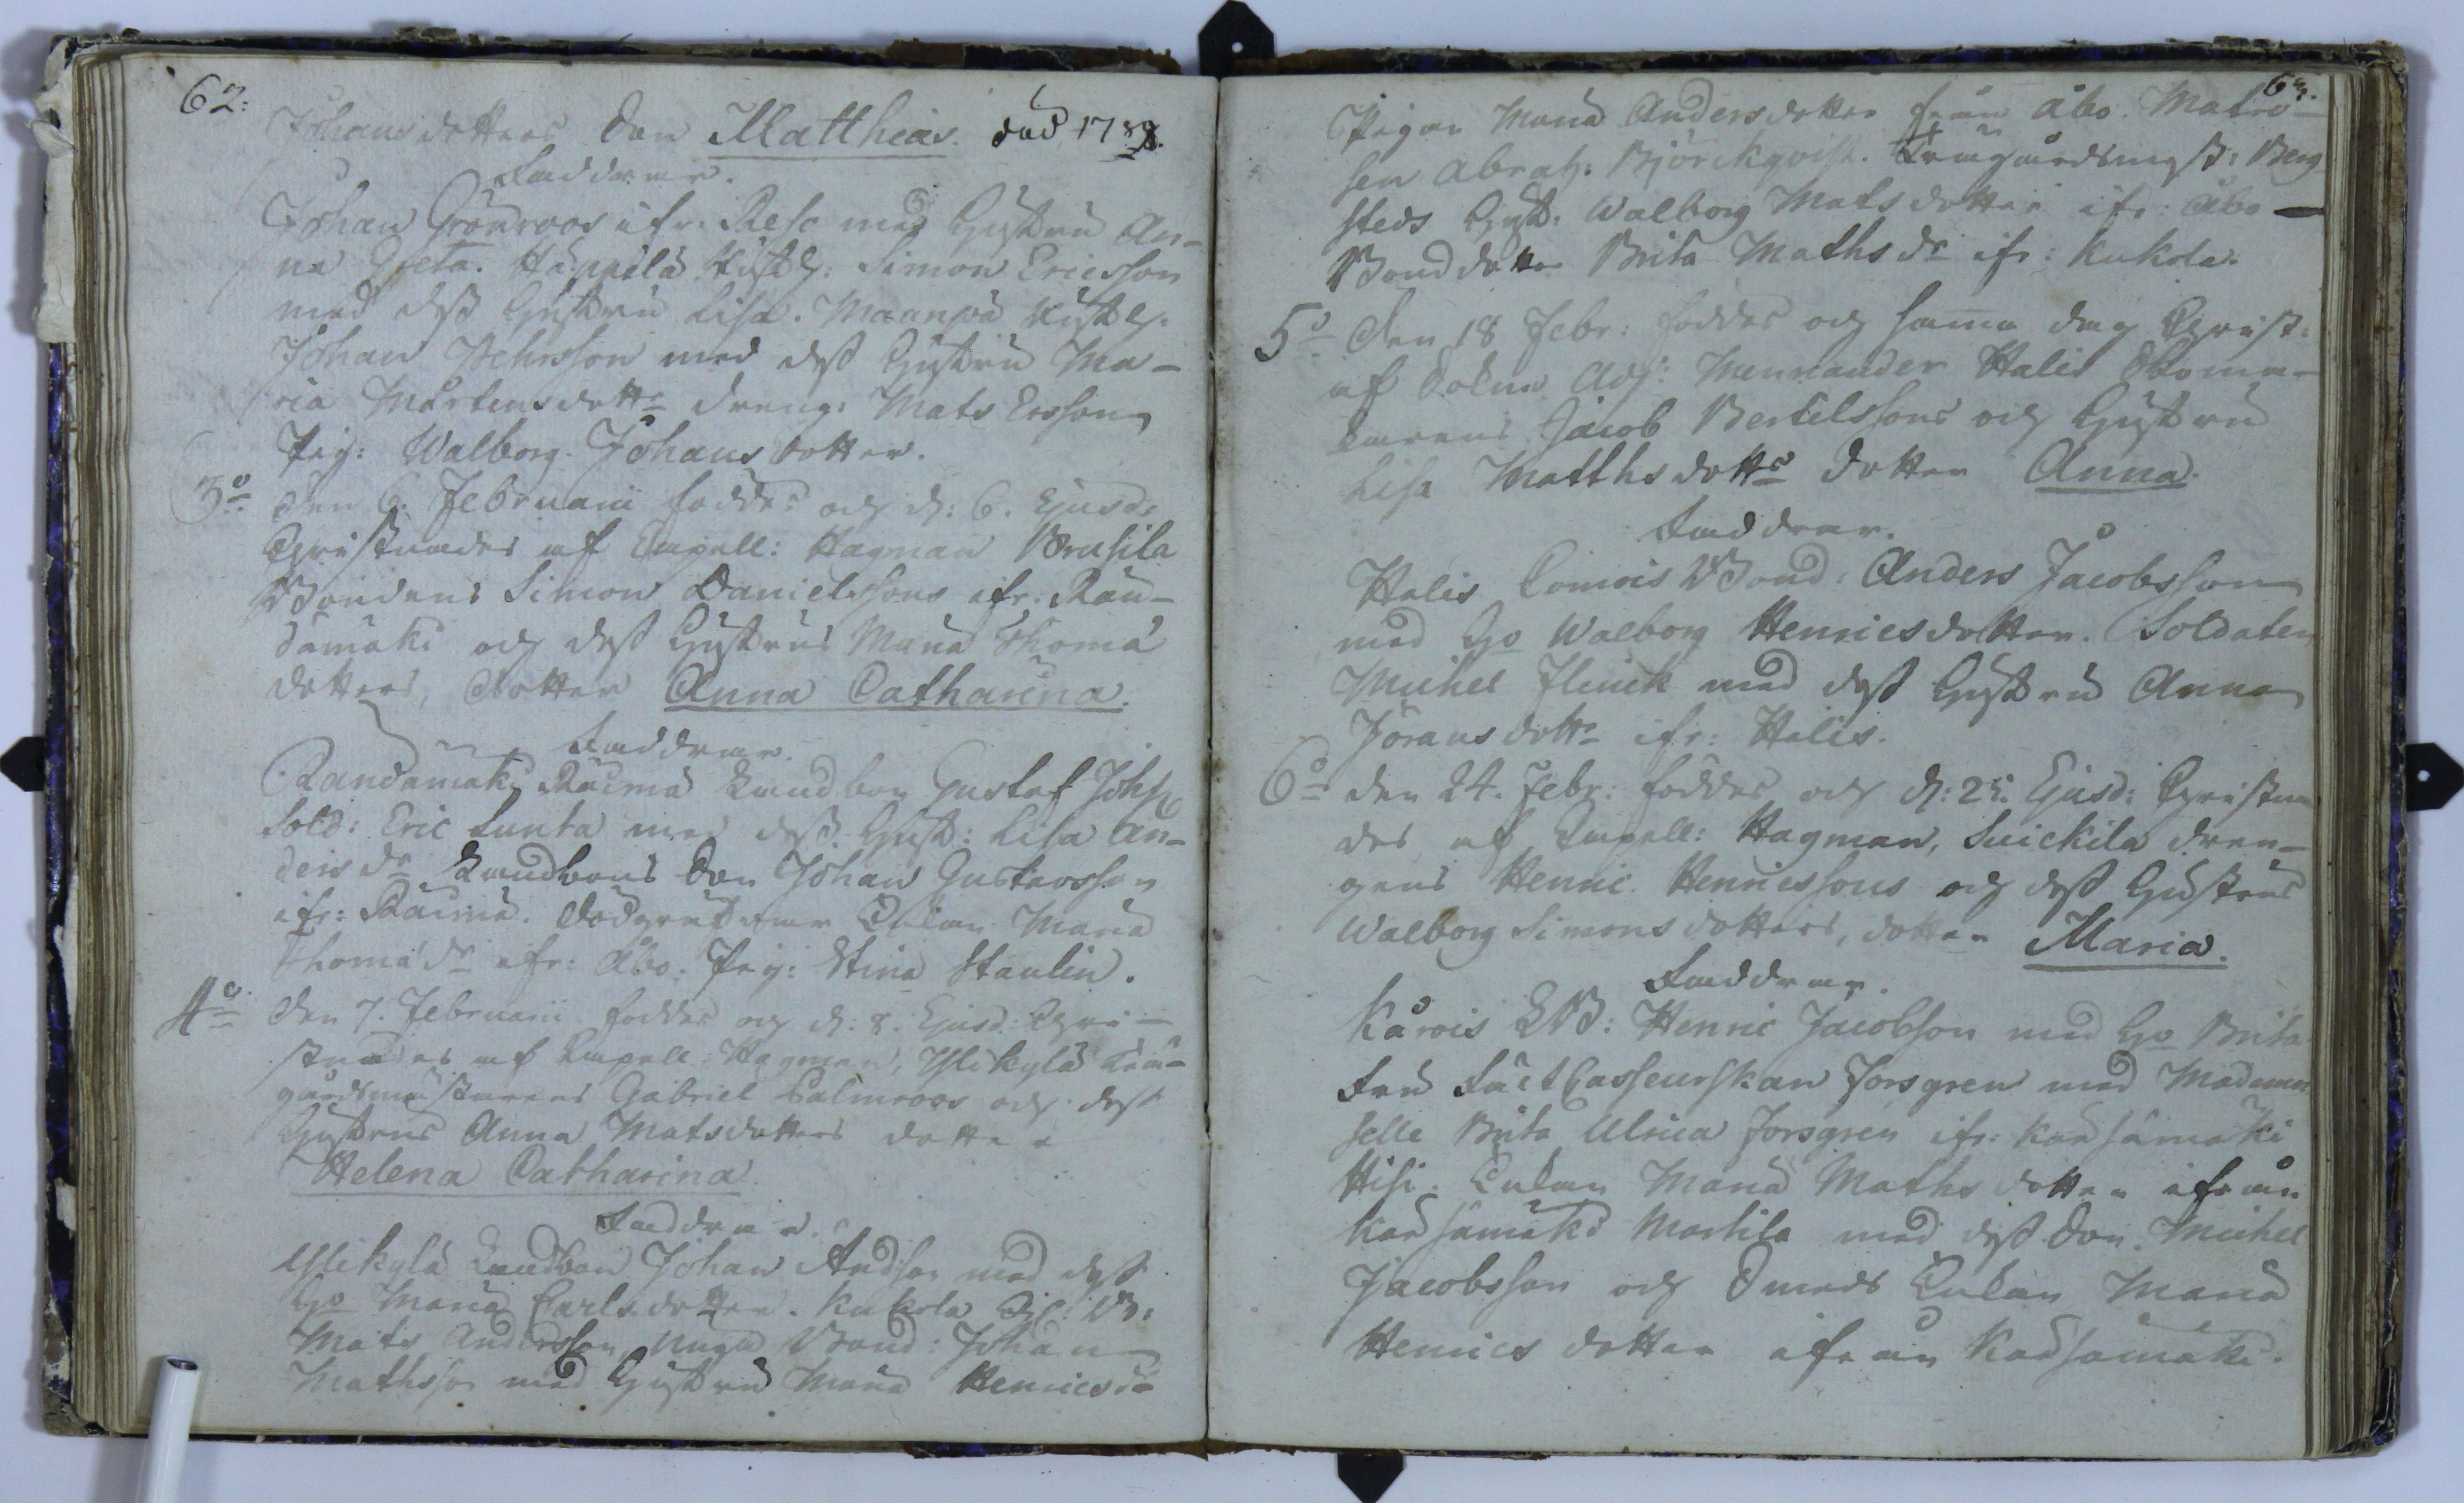 62:
Johansdotters Son Matthias. död 1789.
Faddrar.
Johan Grönroos ifr: Reso med Hustru An-
na Greta. Häppilä Rusth: Simon Ericsson
med dess Hustru Lisa. Maanpä Rusth:
Johan Pehrsson med dess Hustru Ma-
ria Mårtensdottr Dreng: Mats Ersson
Pig: Walborg Johansdotter.
3o Den 6. Februarii föddes och d: 6. Ejusd:
Christnades af Capell: Hagman Brusila
Bondens Simon Danielssons ifr: Ran-
damäki och dess Hustrus Maria Thomä
dotters, dotter Anna Catharina.
Faddrar.
Randamäki Räimä Landbon Gustaf Johss
Sold: Eric Lunta med dess Hust: Lisa An-
dersdr Landbons Son Johan Gustavsson
ifr: Räimä. Enkan Maria
Thomädr ifr: Åbo. Pig: Stina Staulin.
4o Den 7. Februarii föddes och d: 8. Ejusd: Chri-
stnades af Capell: Hagman, Ylikylä Krü-
gårdsmästarens Gabriel Palmroos och dess
Hustrus Anna Matsdotters dotter
Helena Catharina
Faddrar.
Ylikylä Landbon Johan Andson med dess
Ho Maria Carlsdotter. Kukola
Mats Andersson, Nuga Bond: Johan
Mathsson med Hustru Maria Henricsdr
63.
Pigan Maria Andersdotter från Åbo. Matro-
sen Abrah: Björckqvist. Krügårdsmyst: Berg-
steds Hust: Walborg Matsdotter ifr: Åbo
Bonddotter Brita Mathsdr ifr: Kukola.
5o Den 18 Febr: föddes och samma dag Christ:
af Sokne Adj: Mennander Halis Skoma-
karens Jacob Bertelssons och Hustru
Lisa Matthsdottrs dotter Anna.
Faddrar.
Halis Comois Bond: Anders Jacobsson
med Ho Walborg Henricsdotter. Soldaten
Michel Flinck med dess Hustru Anna
Jöransdottr ifr: Halis.
6o den 24. Febr: föddes och d: 25. Ejusd: Christna-
des af Capell: Hagman, Suickila dren-
gens Henric Henricssons och dess Hustrus
Walborg Simonsdotters, dotter Maria.
Faddrar.
Kårois LB: Henric Jacobson med Ho Brita
Fru Forsgren med Madamoi
selle Brita Ulrica Forsgren ifr: Karsämäki
Hisi. Enkan Maria Mathsdotter ifrån
Karsämäki Martila med dess Son Michel
Jacobsson och Smeds Enkan Maria
Henricsdotter ifrån Karsamäki.